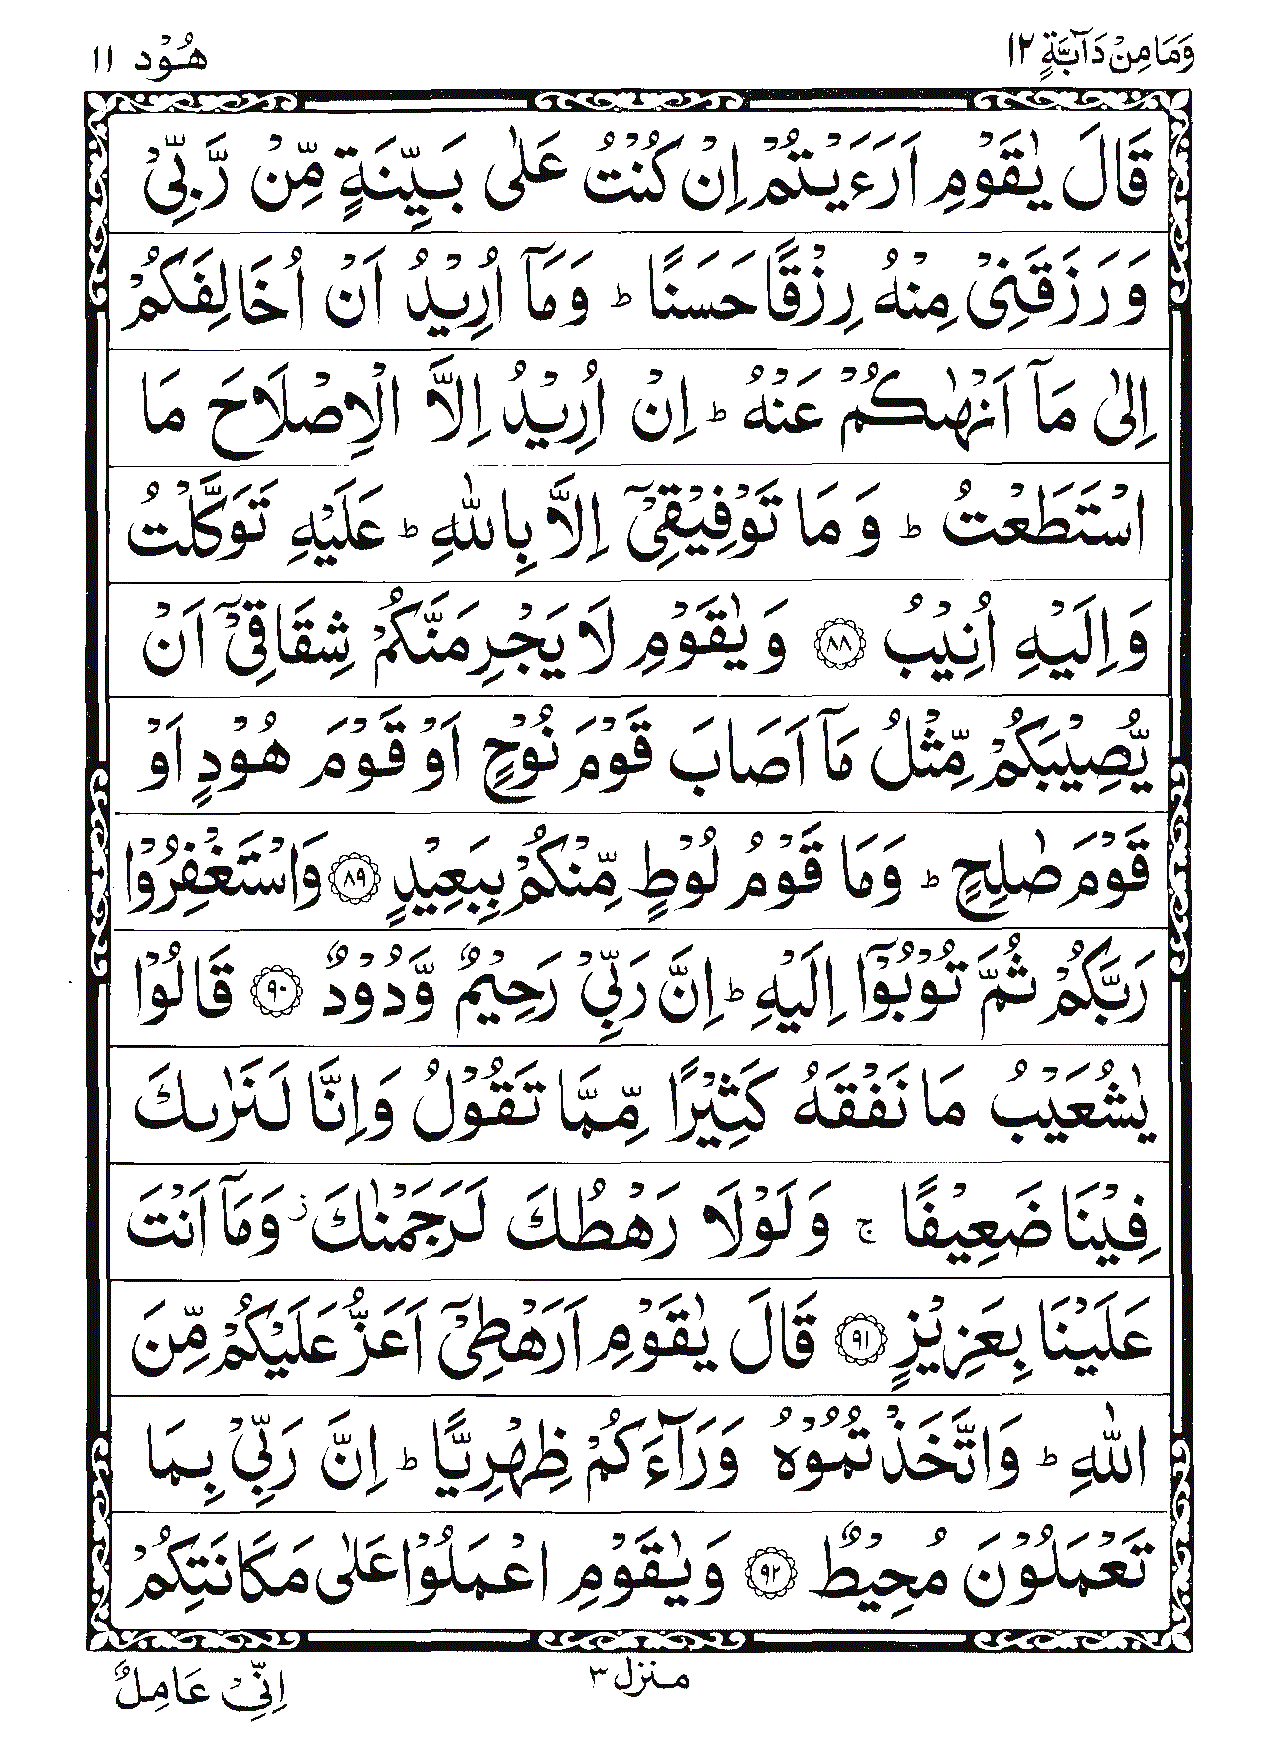 وَمَا مِنْ دَآبَّةٍ ١٢
هُوْد ١١
قَالَ يٰقَوْمِ اَرَءَيْتُمْ اِنْ كُنْتُ عَلٰى بَيِّنَةٍ مِّنْ رَّبِّىْ
وَرَزَقَنِىْ مِنْهُ رِزْقًا حَسَنًا ؕ وَمَآ اُرِيْدُ اَنْ اُخَالِفَكُمْ
اِلٰى مَآ اَنْهٰٮكُمْ عَنْهُ ؕ اِنْ اُرِيْدُ اِلَّا الْاِصْلَاحَ مَا
اسْتَطَعْتُ ؕ وَمَا تَوْفِيْقِىْٓ اِلَّا بِاللّٰهِ ؕ عَلَيْهِ تَوَكَّلْتُ
وَاِلَيْهِ اُنِيْبُ ۝٨٨ وَيٰقَوْمِ لَا يَجْرِمَنَّكُمْ شِقَاقِىْٓ اَنْ
يُّصِيْبَكُمْ مِّثْلُ مَآ اَصَابَ قَوْمَ نُوْحٍ اَوْ قَوْمَ هُوْدٍ اَوْ
قَوْمَ صٰلِحٍ ؕ وَمَا قَوْمُ لُوْطٍ مِّنْكُمْ بِبَعِيْدٍ ۝٨٩ وَاسْتَغْفِرُوْا
رَبَّكُمْ ثُمَّ تُوْبُوْٓا اِلَيْهِ ؕ اِنَّ رَبِّىْ رَحِيْمٌ وَّدُوْدٌ ۝٩٠ قَالُوْا
يٰشُعَيْبُ مَا نَفْقَهُ كَثِيْرًا مِّمَّا تَقُوْلُ وَاِنَّا لَنَرٰٮكَ
فِيْنَا ضَعِيْفًا ۚ وَلَوْلَا رَهْطُكَ لَرَجَمْنٰكَ ز وَمَآ اَنْتَ
عَلَيْنَا بِعَزِيْزٍ ۝٩١ قَالَ يٰقَوْمِ اَرَهْطِىْٓ اَعَزُّ عَلَيْكُمْ مِّنَ
اللّٰهِ ؕ وَاتَّخَذْتُمُوْهُ وَرَآءَكُمْ ظِهْرِيًّا ؕ اِنَّ رَبِّىْ بِمَا
تَعْمَلُوْنَ مُحِيْطٌ ۝٩٢ وَيٰقَوْمِ اعْمَلُوْا عَلٰى مَكَانَتِكُمْ
منزل ٣
اِنِّىْ عَامِلٌ